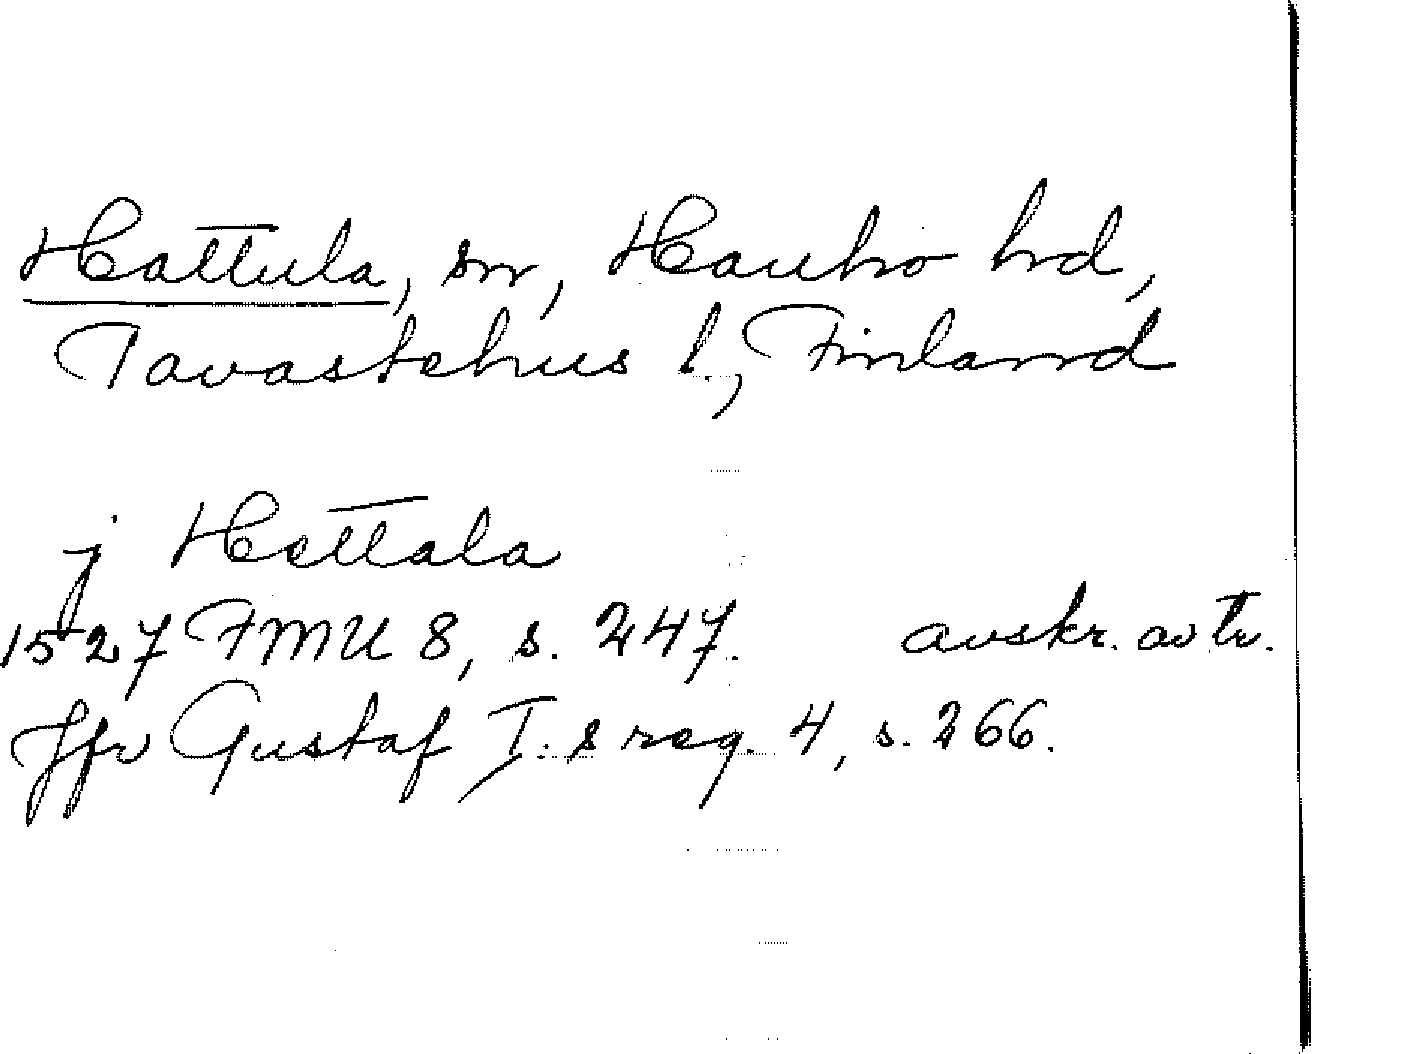 Hattula, sn, Hauho hd,
Tavastehus l., Finland
j Hettala
1527 FMU 8, s. 247. avskr. av tr.
Jfr Gustaf I:s reg. 4, s. 266.